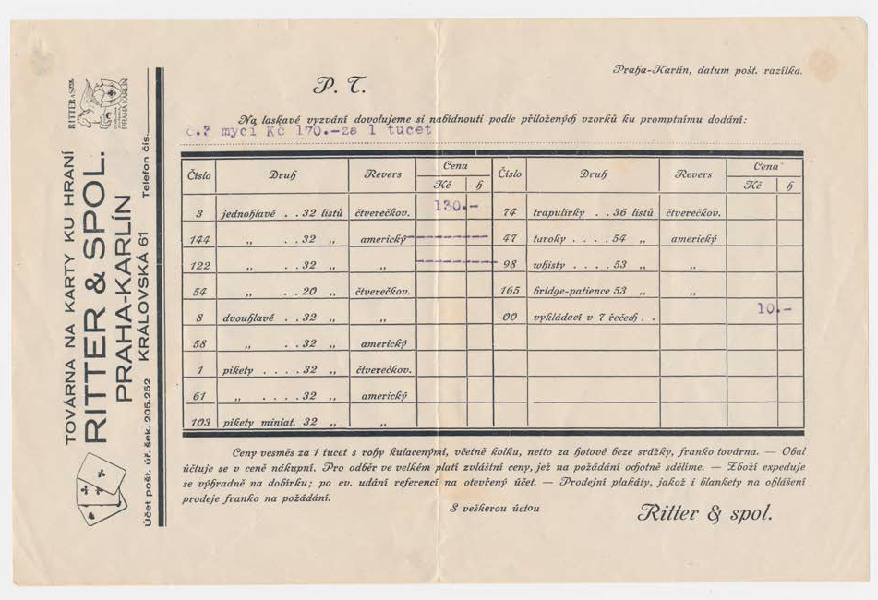 TOVÁRNA NA KARTY KU HRANÍ
RITTER & SPOL.
PRAHA-KARLÍN
KRÁLOVSKÁ 61
Telefon čís.
Účet pošt. úř. šek. 206.252
RITTER A SPOL.
PRAHA KARLÍN
P. T.
Praha-Karlín, datum pošt. razítka.
Na laskavé vyzvání dovolujeme si nabídnouti podle přiložených vzorků ku promptnímu dodání:
č.3 mycí Kč 170.-za 1 tucet
Číslo Druh Revers Cena Kč h Číslo Druh Revers Cena Kč h
3 jednohlavé . . 32 listů čtverečkov. 130.- 74 trapulírky . . 36 listů čtverečkov.
144 „ . . 32 „ americký 47 taroky . . . . 54 „ americký
122 „ . . 32 „ „ 98 whisty . . . . 53 „ „
54 „ . . 20 „ čtverečkov. 165 bridge-patience 53 „ „
8 dvouhlavé . . 32 „ „ 00 vykládací v 7 řečech . . 10.-
58 „ . . 32 „ americký
1 pikety . . . . 32 „ čtverečkov.
61 „ . . . . 32 „ americký
103 pikety miniat. 32 „ „
Ceny vesměs za 1 tucet s rohy kulacenými, včetně kolku, netto za hotové beze srážky, franko továrna. — Obal
účtuje se v ceně nákupní. Pro odběr ve velkém platí zvláštní ceny, jež na požádání ochotně sdělíme. — Zboží expeduje
se výhradně na dobírku; po ev. udání referencí na otevřený účet. — Prodejní plakáty, jakož i blankety na ohlášení
prodeje franko na požádání.
S veškerou úctou
Ritter & spol.